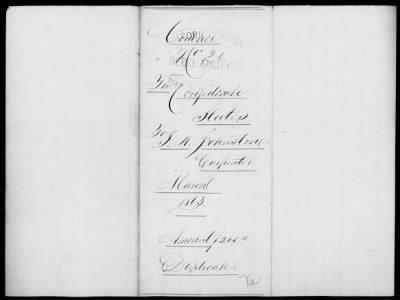 Voucher
No 21
REBEL ARCHIVES
The Confederate
States
To
J. A. Johnstone
Carpenter
March
1863
Amount $204.00
Duplicate